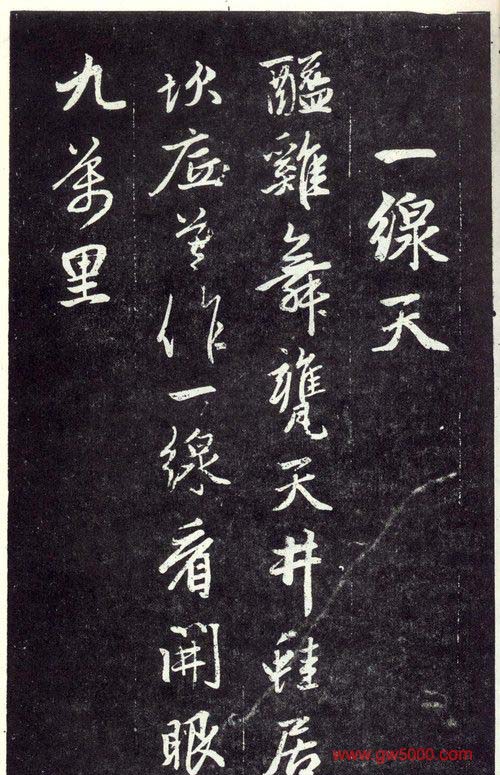 一線天
醯雞舞甕天井蛙居
坎底莫作一線看開眼
九萬里
www.gw5000.com